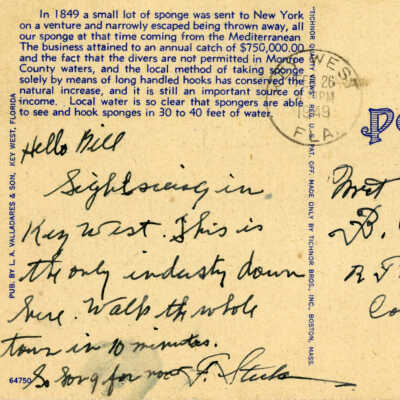 In 1849 a small lot of sponge was sent to New York
on a venture and narrowly escaped being thrown away, all
our sponge at that time coming from the Mediterranean
The business attained to an annual catch of $750,000.00
and the fact that the divers are not permitted in Monroe
County waters, and the local method of taking sponge
solely by means of long handled hooks has conserved the
natural increase, and it is still an important source of
income. Local water is so clear that spongers are able
to see and hook sponges in 30 to 40 feet of water.
Hello Bill
Sightseeing in
Key West. This is
the only industy down
here. Walk the whole
town in 10 minutes.
So long for now F.
64750
PUB. BY L. A. VALLADARES & SON, KEY WEST, FLORIDA
"TICHNOR QUALITY VIEWS," REG. U. S. PAT. OFF. MADE ONLY BY TICHNOR BROS., INC., BOSTON, MASS.
WEST
26
PM
1949
FLA.
Po
B.
Co